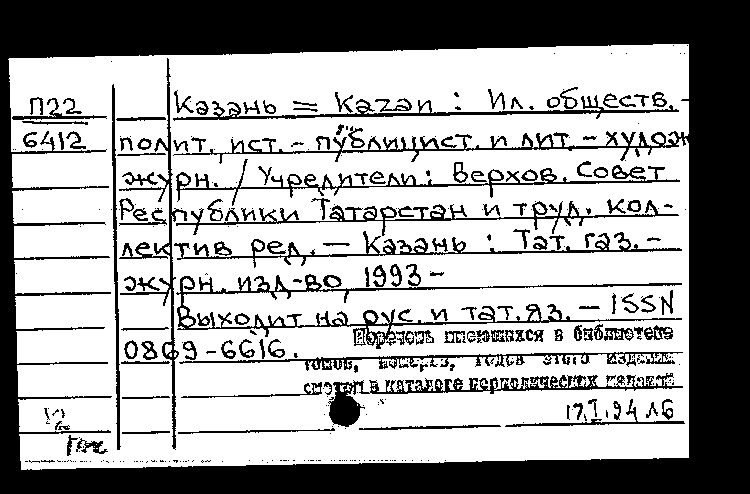 П22 Казань = Kazan : Ил. обществ.-
6412 полит., ист. - публицист. и лит. - худож
журн. / Учредители: Верхов. Совет
Республики Татарстан и труд. кол-
лектив ред. — Казань : Тат. газ. -
журн. изд-во, 1993 -
Выходит на рус. и тат. яз. — ISSN
0869-6616.
Перечень имеющихся в библиотеке
томов, номеров, годов этого издания
смотри в каталоге периодических изданий
12 17.I.94